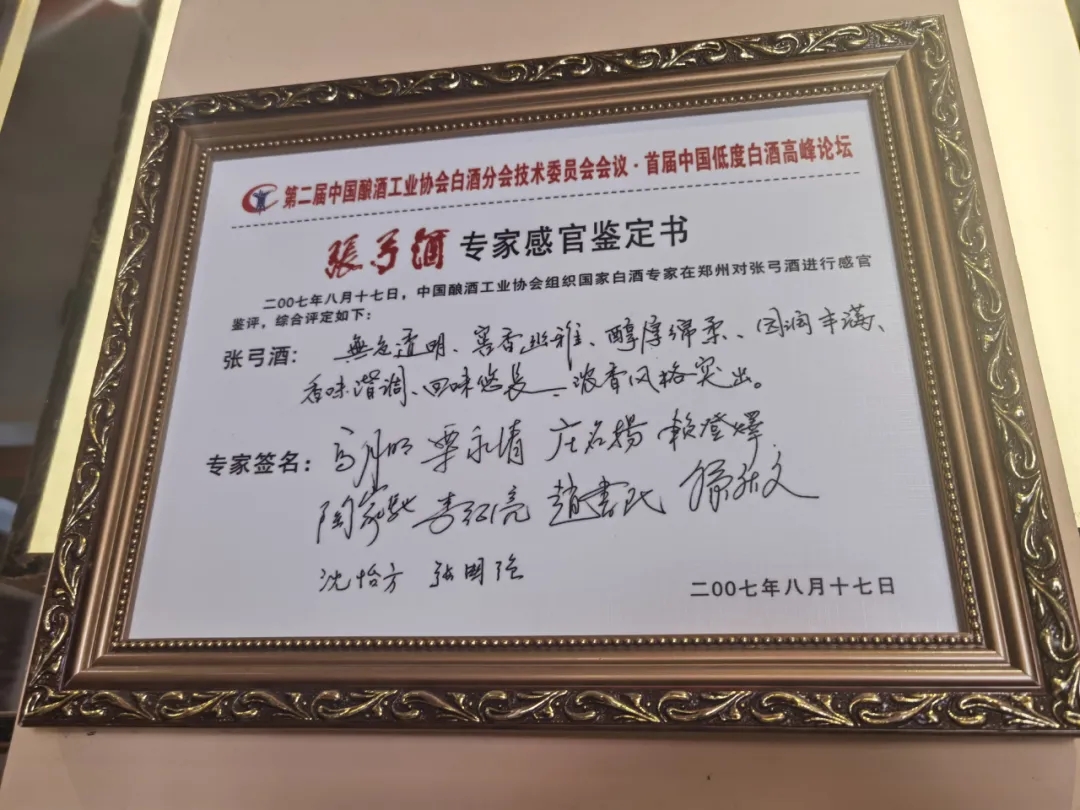 第二届中国酿酒工业协会白酒分会技术委员会会议·首届中国低度白酒高峰论坛
張弓酒 专家感官鉴定书
二00七年八月十七日，中国酿酒工业协会组织国家白酒专家在郑州对张弓酒进行感官
鉴评，综合评定如下：
张弓酒： 無色透明、窖香幽雅、醇厚绵柔、圆润丰满、
香味谐调、回味悠长、浓香风格突出。
专家签名：高月明 栗永清 庄名扬 赖登燡
陶家驰 李红亮 趙書民
沈怡方 张国强
二00七年八月十七日